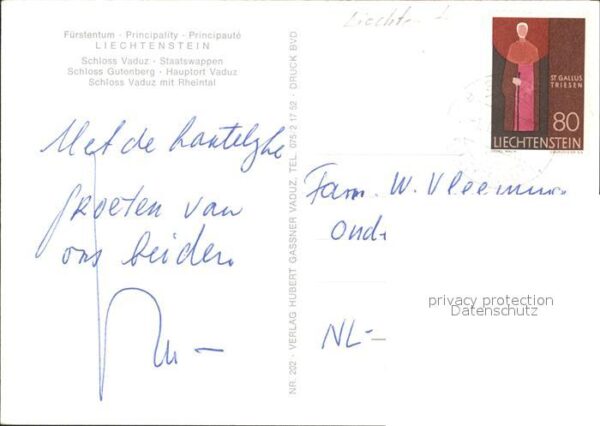 Fürstentum · Principality · Principauté
LIECHTENSTEIN
Schloss Vaduz · Staatswappen
Schloss Gutenberg · Hauptort Vaduz
Schloss Vaduz mit Rheintal
Met de hartelyke
groeten van
ons beiden.
NR. 202 · VERLAG HUBERT GASSNER VADUZ, TEL. 075 2 17 52 · DRUCK BVD
ST GALLUS
TRIESEN
80
LIECHTENSTEIN
Fam. W.
Ond
NL-
privacy protection
Datenschutz